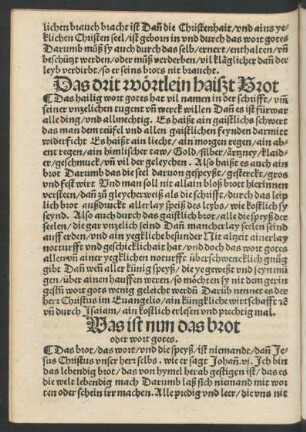 lichen brauch bracht ist Dañ die Christenhait/ vnd ains ye
klichen Christen seel/ ist geborn in vnd durch das wort gotes
Darumb můß sy auch durch das selb/ ernert/ enthalten/ vñ
beschützt werden/ oder můß verderben/ vil kläglicher dañ der
leyb verdirbt/ so er seins brots nit braucht.
Das drit wörtlein haißt Brot
Das hailig wort gotes hat vil namen in der schrifft/ vm̃
seiner vnzelichen tugent vñ werck willen Dañ es ist fürwar
alle ding/ vnd allmechtig. Es haißt ain gaistlichs schwert
das man dem teüfel vnd allen gaistlichen feynden darmitt
widerficht Es haist ain liecht/ ain morgen regen/ ain ab
ent regen/ ain himlischer taw/ Gold/ silber/ ärtzney/ klaid/
er/ geschmuck/ vñ vil der geleychen. Also haißt es auch ain
brot Darumb das die seel daruon gespeyßt/ gesterckt/ gros
vnd fest wirt Vnd man sol nit allain bloß brott hierinnen
versteen/ dañ zů gleycherweiß als die schrifft/ durch das leip
lich brot außdruckt allerlay speiß des leybs/ wie köstlich sy
seynd. Also auch durch das gaistlich brot/ alle die speyß der
seelen/ die gar vnzelich seind Dañ mancherlay seelen seind
auff erden/ vnd ain yegkliche besunder Nit alzeit ainerlay
notturfft vnd geschicklichait hat/ vnd doch das wort gotes
allen vnd ainer yegklichen notturfft überschwencklich gnůg
gibt Dañ weñ aller künig speyß/ die ye geweßt vnd seyn mü
gen/ über ainen hauffen weren/ so möchten sy nit dem gerin
gestñ wort gots wenig geleicht werdñ Darũb nennet es der
herr Christus im Euangelio/ ain küngkliche wirtschafft ꝛc
vñ durch Isaiam/ ain kostlich erlesen vnd prechtig mal.
Was ist nun das brot
oder wort gottes.
Das brot/ das wort/ vnd die speyß/ ist niemandt/ dañ Je
sus Christus vnser herr selbs. wie er sagt Johañ.vi. Ich bin
das lebendig brot/ das von hymel herab gestigen ist/ das es
die welt lebendig mach Darumb laß sich niemand mit wor
ten oder schein irr machen. Alle predig vnd leer/ die vns nit